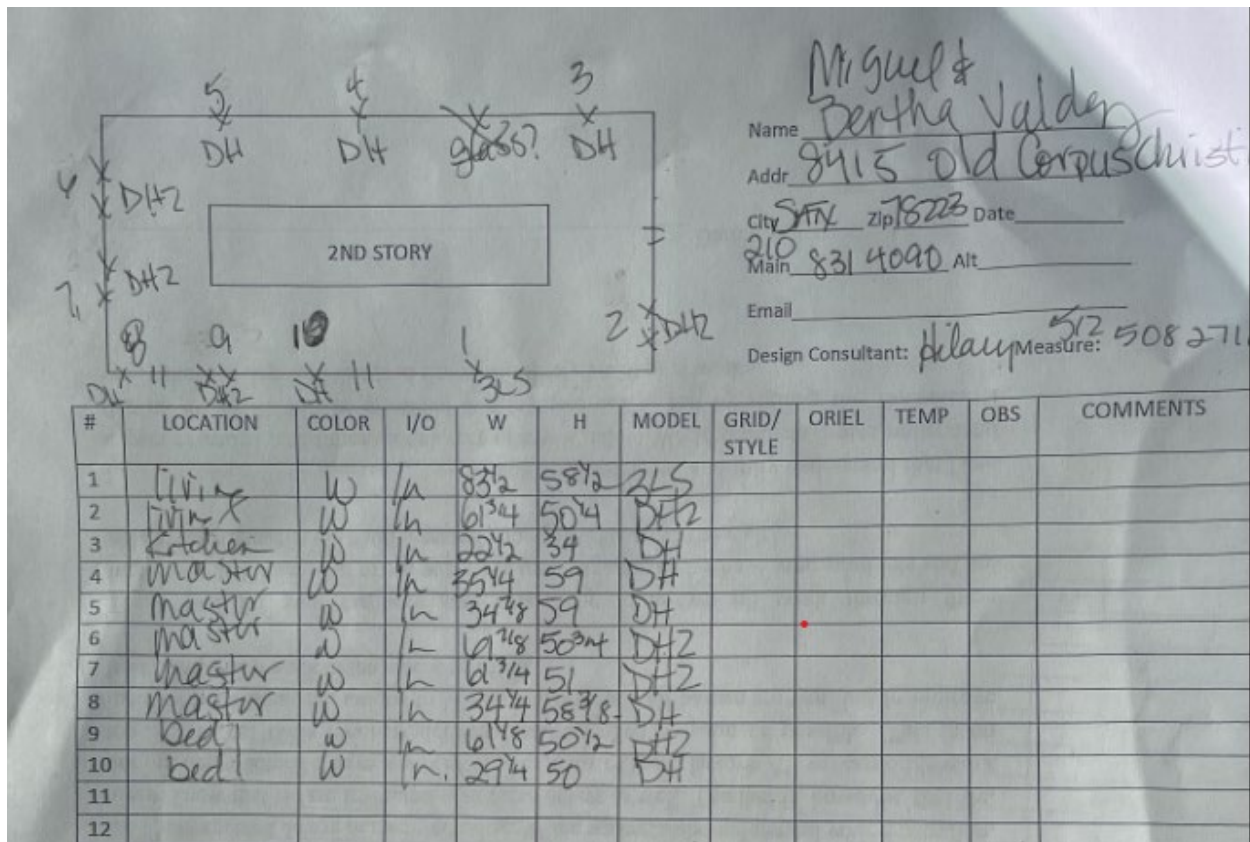 5 4 3
DH DH glass? DH
6 DH2
2ND STORY
7 DH2
2 DH2
8 9 10 1
DH DH2 DH 3LS
Miguel &
Name Bertha Valdez
Addr 8415 Old Corpus Christi
City SATX Zip 78223 Date
210
Main 831 4090 Alt
Email
512
Design Consultant: Hilary Measure: 508 271
# LOCATION COLOR I/O W H MODEL GRID/STYLE ORIEL TEMP OBS COMMENTS
1 living W In 83 1/2 58 1/2 3LS
2 living W In 61 3/4 50 1/4 DH2
3 Kitchen W In 22 1/2 34 DH
4 master W In 35 1/4 59 DH
5 master W In 34 59 DH
6 master W In 50 3/4 DH2
7 master W In 61 3/4 51 DH2
8 master W In 34 1/4 58 DH
9 bed 1 W In 61 1/8 50 1/2 DH2
10 bed 1 W In. 29 1/4 50 DH
11
12